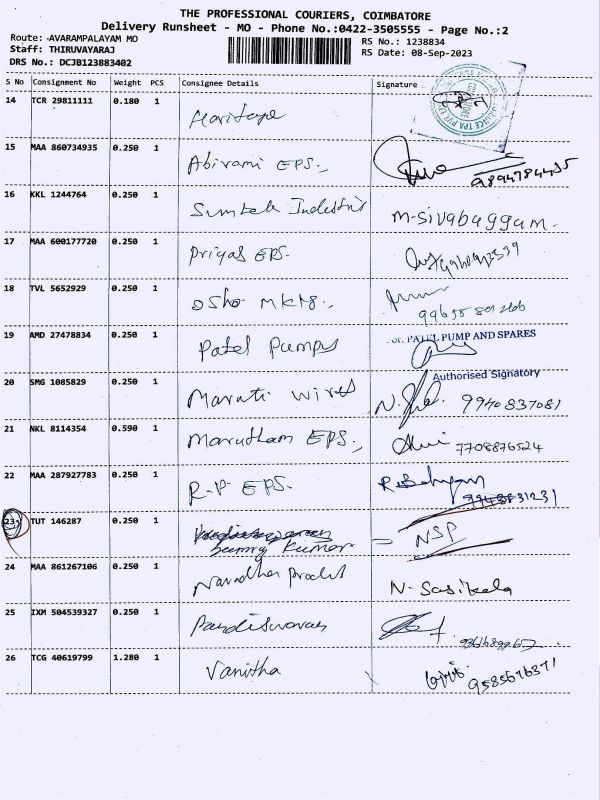 THE PROFESSIONAL COURIERS, COIMBATORE
Delivery Runsheet - MO - Phone No.:0422-3505555 - Page No.:2
Route: AVARAMPALAYAM MO
RS No.: 1238834
Staff: THIRUVAYARAJ
RS Date: 08-Sep-2023
DRS No.: DCJB123883402
S No Consignment No Weight PCS Consignee Details Signature
14 TCR 29811111 0.180 1 Haritage
15 MAA 860734935 0.250 1 Abirami EPS.
16 KKL 1244764 0.250 1 Industries M-Sivabaggam.
17 MAA 600177720 0.250 1 Priyas EPS.
18 TVL 5652929 0.250 1 Osho Mkts.
19 AMD 27478834 0.250 1 Patel Pumps PATEL PUMP AND SPARES
Authorised Signatory
20 SMG 1085829 0.250 1 Maruti Wires 9940837081
21 NKL 8114354 0.590 1 Marutham EPS. 7708876524
22 MAA 287927783 0.250 1 R.P EPS.
23 TUT 146287 0.250 1 Kumar NSP
24 MAA 861267106 0.250 1 N. Sasikala
25 IXM 504539327 0.250 1 Pandiswaran
26 TCG 40619799 1.280 1 Vanitha 9585676371